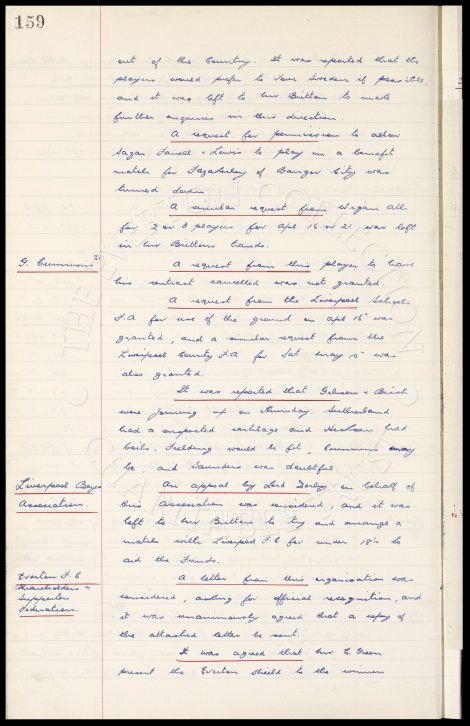 159
out of the Country. It was reported that the
players would prefer to tour Sweden if possible,
and it was left to Mr Britton to make
further enquiries in this direction.
A request for permission to allow
Sagar, Farrell & Lewis to play in a benefit
match for Fazakerley of Bangor City was
turned down.
A similar request from Wigan Ath
for 2 or 3 players for Apl 16 or 21 was left
in Mr Brittons hands.
G. Cummins
A request from this player to have
his contract cancelled was not granted.
A request from the Liverpool Schools
F.A for use of the ground on Apl 16 was
granted, and a similar request from the
Liverpool County F.A for Sat May 10 was
also granted.
It was reported that Gibson & Birch
were joining up on Thursday. Sutherland
had a suspected cartilage and had
boils. Fielding would be fit. Cummins may
be, and Saunders was doubtful.
Liverpool Boys
Association.
An appeal by Lord Derby on behalf of
this Association was considered, and it was
left to Mr Britton to try and arrange a
match with Liverpool F.C for under 18's to
aid the Funds.
Everton F.C
Shareholders &
Supporters
Federation.
A letter from this organisation was
considered, asking for official recognition, and
it was unanimously agreed that a copy of
the attached letter be sent.
It was agreed that Mr C Green
present the Everton Shield to the winners
THE EVERTON COLLECTION